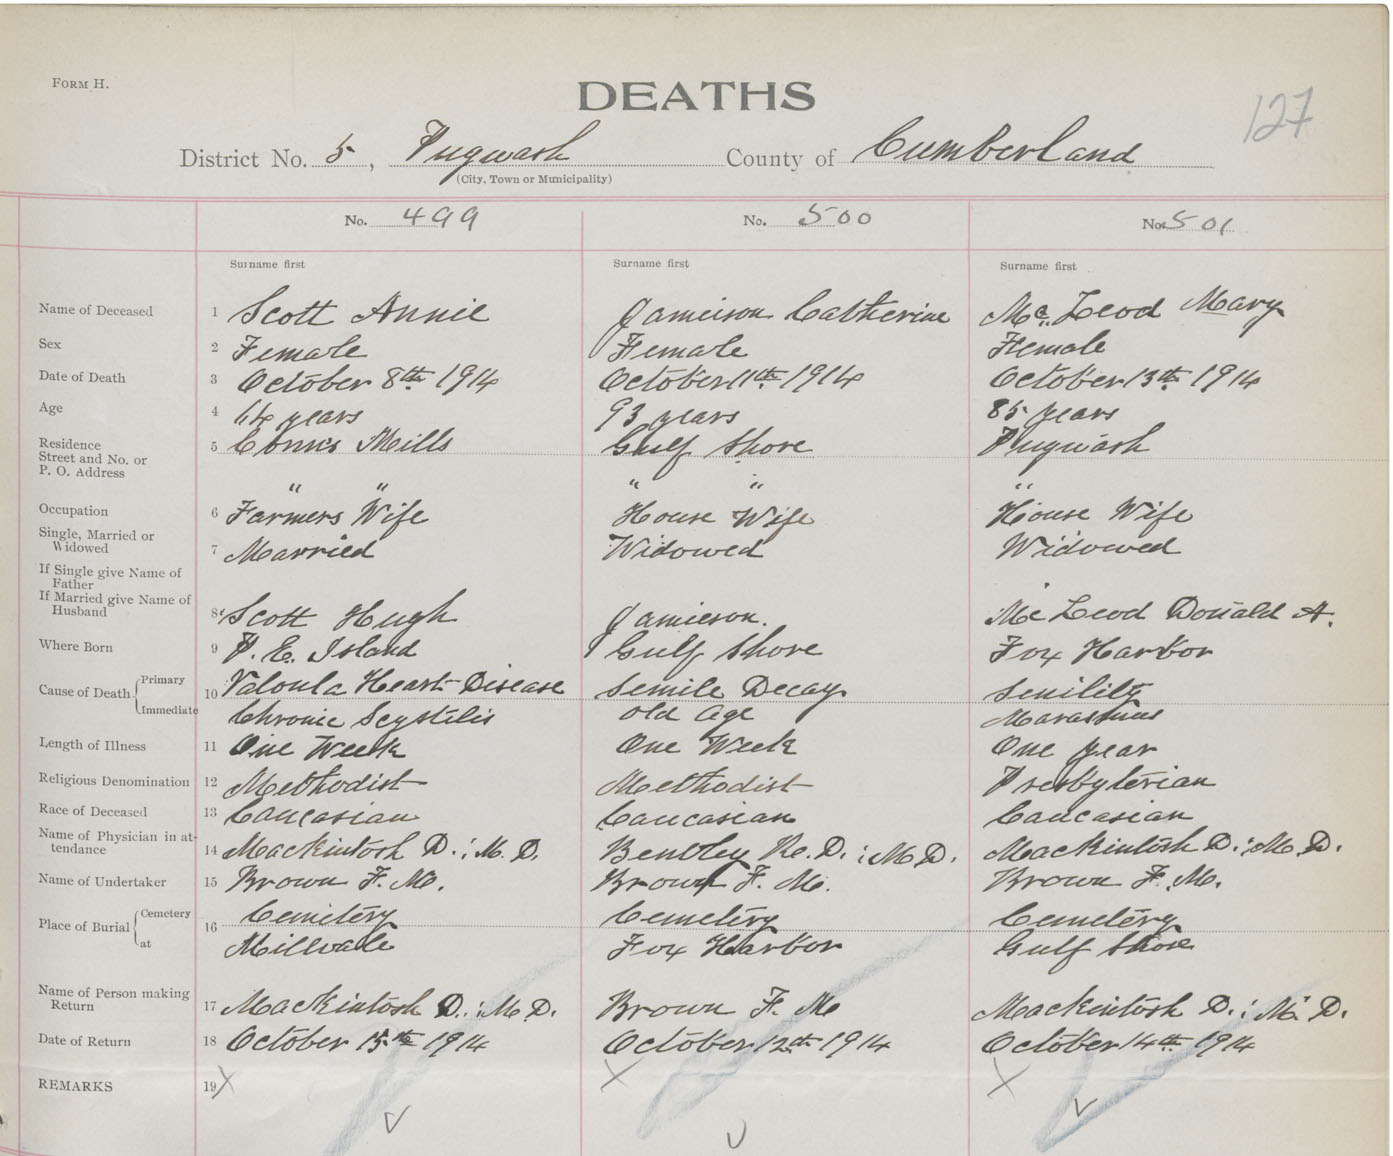 Form H.
DEATHS
127
District No. 5, Pugwash County of Cumberland
(City, Town or Municipality)
No. 499 No. 500 No. 501
Surname first Surname first Surname first
Name of Deceased 1 Scott Annie Jameison Catherine Mc Leod Mary
Sex 2 Female Female Female
Date of Death 3 October 8th 1914 October 11th 1914 October 13th 1914
Age 4 64 years 93 years 85 years
Residence
Street and No. or
P. O. Address
5 Conns Mills Gulf Shore Pugwash
" " " " "
Occupation 6 Farmers Wife House Wife House Wife
Single, Married or
Widowed
7 Married Widowed Widowed
If Single give Name of
Father
If Married give Name of
Husband
8 Scott Hugh Jamieson. Mc Leod Donald A.
Where Born 9 P. E. Island Gulf Shore Fox Harbor
Cause of Death Primary 10 Heart Disease Semile Decay Senility
Immediate Chronic old age Marasmus
Length of Illness 11 One Week One Week One year
Religious Denomination 12 Methodist Methodist Presbyterian
Race of Deceased 13 Caucasian Caucasian Caucasian
Name of Physician in at-
tendance
14 Mackintosh D.; M. D. Bentley R. D.; M. D. Mackintosh D.; M. D.
Name of Undertaker 15 Brown F. M. Brown F. M. Brown F. M.
Place of Burial Cemetery 16 Cemitery Cemetery Cemetery
at Millvale Fox Harbor Gulf Shore
Name of Person making
Return
17 Mackintosh D.; M. D. Brown F. M Mackintosh D.; M. D.
Date of Return 18 October 15th 1914 October 12th 1914 October 14th 1914
REMARKS 19 X X X